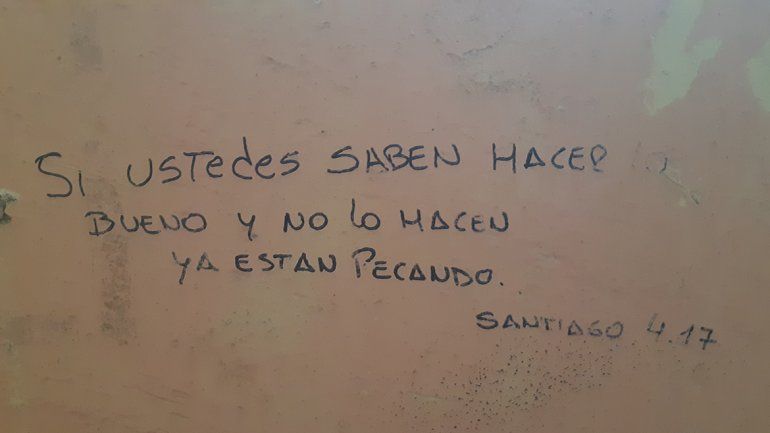 Si ustedes SABEN HACER
BUENO Y NO LO HACEN
YA ESTAN PECANDO.
SANTIAGO 4.17